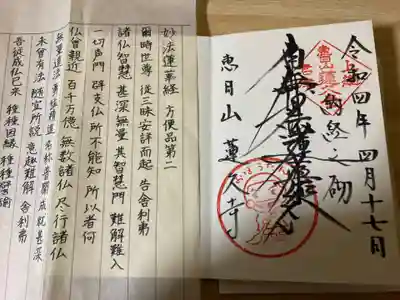 令和四年四月十七日
納経之砌
南無妙法蓮華経
恵日山
妙法蓮華経 方便品第二
爾時世尊 従三昧安詳而起 告舎利弗
諸仏智慧 甚深無量 其智慧門 難解難入
一切声聞 辟支仏 所不能知 所以者何
仏曾親近 百千万億 無数諸仏 尽行諸仏
無量道法 勇猛精進 名称普聞 成就甚深
未曾有法 随宜所説 意趣難解 舎利弗
吾従成仏已来 種種因縁 種種譬諭